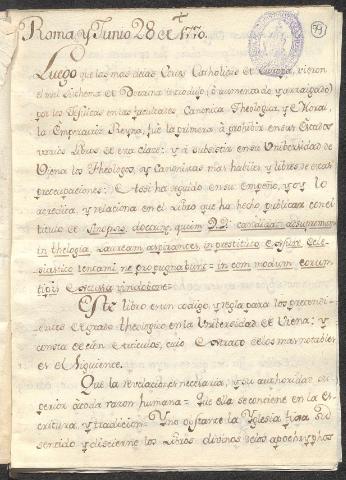 Roma y Junio 28 de 1770.
79
Luego que las mas de las Cortes Catholicas de Europa, vieron
el mal systema de Doctrina introducido, ô aumentado y arraigado
por los Jesuitas en las facultades Canonica Theologica, y Moral,
la Emperatriz Reyna, fue la primera à prohibir en sus Estados
varios Libros de esta clase: y à substituir en su Universidad de
Viena los Theologos, y Canonistas mas habiles y libres de estas
preocupaciones: Esto se ha seguido en su empeño, y lo
acredita, y relaciona en el Libro que ha hecho publicar con el
titulo de doctrinæ, quam DD.
in theologia, Lauream aspirantes, in
tentami, ne propugnabunt = in commodum eorum
typis
Este libro es un codigo, y regla para los pretendi-
entes de grado theologico en la Universidad de Viena: y
consta de cien Articulos, cuio extracto de los mas notables
es el siguiente.
Que la revelacion es necesaria, y su authoridad su-
perior à toda razon humana = que ella se contiene en la es-
critura, y tradicion = Y no obstante la Yglesia fixa su
sentido, y discierne los Libros divinos de los apochryphos